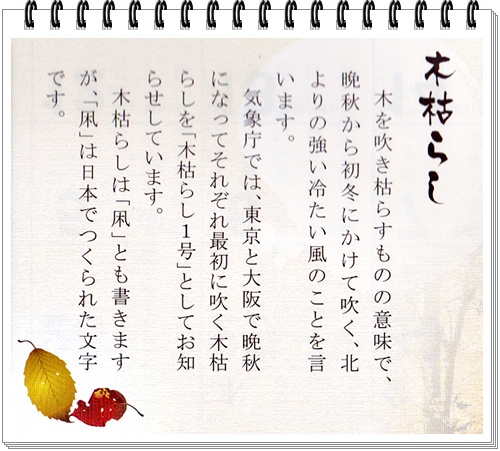 木枯らし
木を吹き枯らすものの意味で、
晩秋から初冬にかけて吹く、北
よりの強い冷たい風のことを言
います。
気象庁では、東京と大阪で晩秋
になってそれぞれ最初に吹く木枯
らしを「木枯らし1号」としてお知
らせしています。
木枯らしは「凩」とも書きます
が、「凩」は日本でつくられた文字
です。